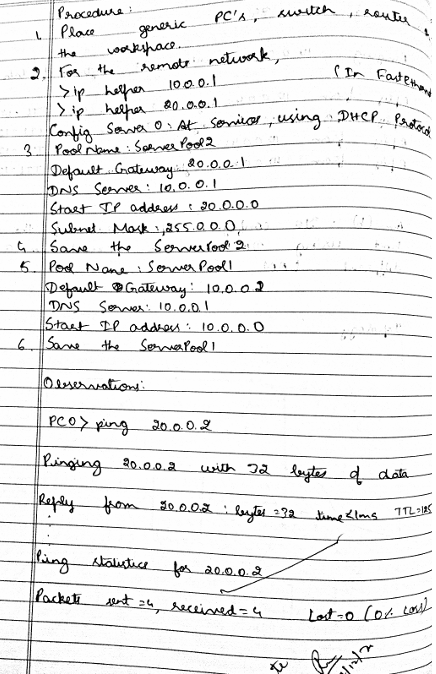 Procedure:
1. Place generic PC's, switch, router &
the workspace.
2. For the remote network,
>ip helper 10.0.0.1 (In FastEthern
>ip helper 20.0.0.1
Config Server 0: At Services, using DHCP Protoco
3 Pool Name: ServerPool2
Default Gateway: 20.0.0.1
DNS Server: 10.0.0.1
Start IP address: 20.0.0.0
Subnet Mask: 255.0.0.0
4. Save the ServerPool 2
5. Pool Name: ServerPool1
Default Gateway: 10.0.0.2
DNS Server: 10.0.0.1
Start IP address: 10.0.0.0
6. Save the ServerPool1
Observations:
PC0> ping 20.0.0.2
Pinging 20.0.0.2 with 32 bytes of data
Reply from 20.0.0.2: bytes=32 time<1ms TTL=125
Ping statistics for 20.0.0.2
Packets sent=4, received=4 Lost=0 (0% Loss)